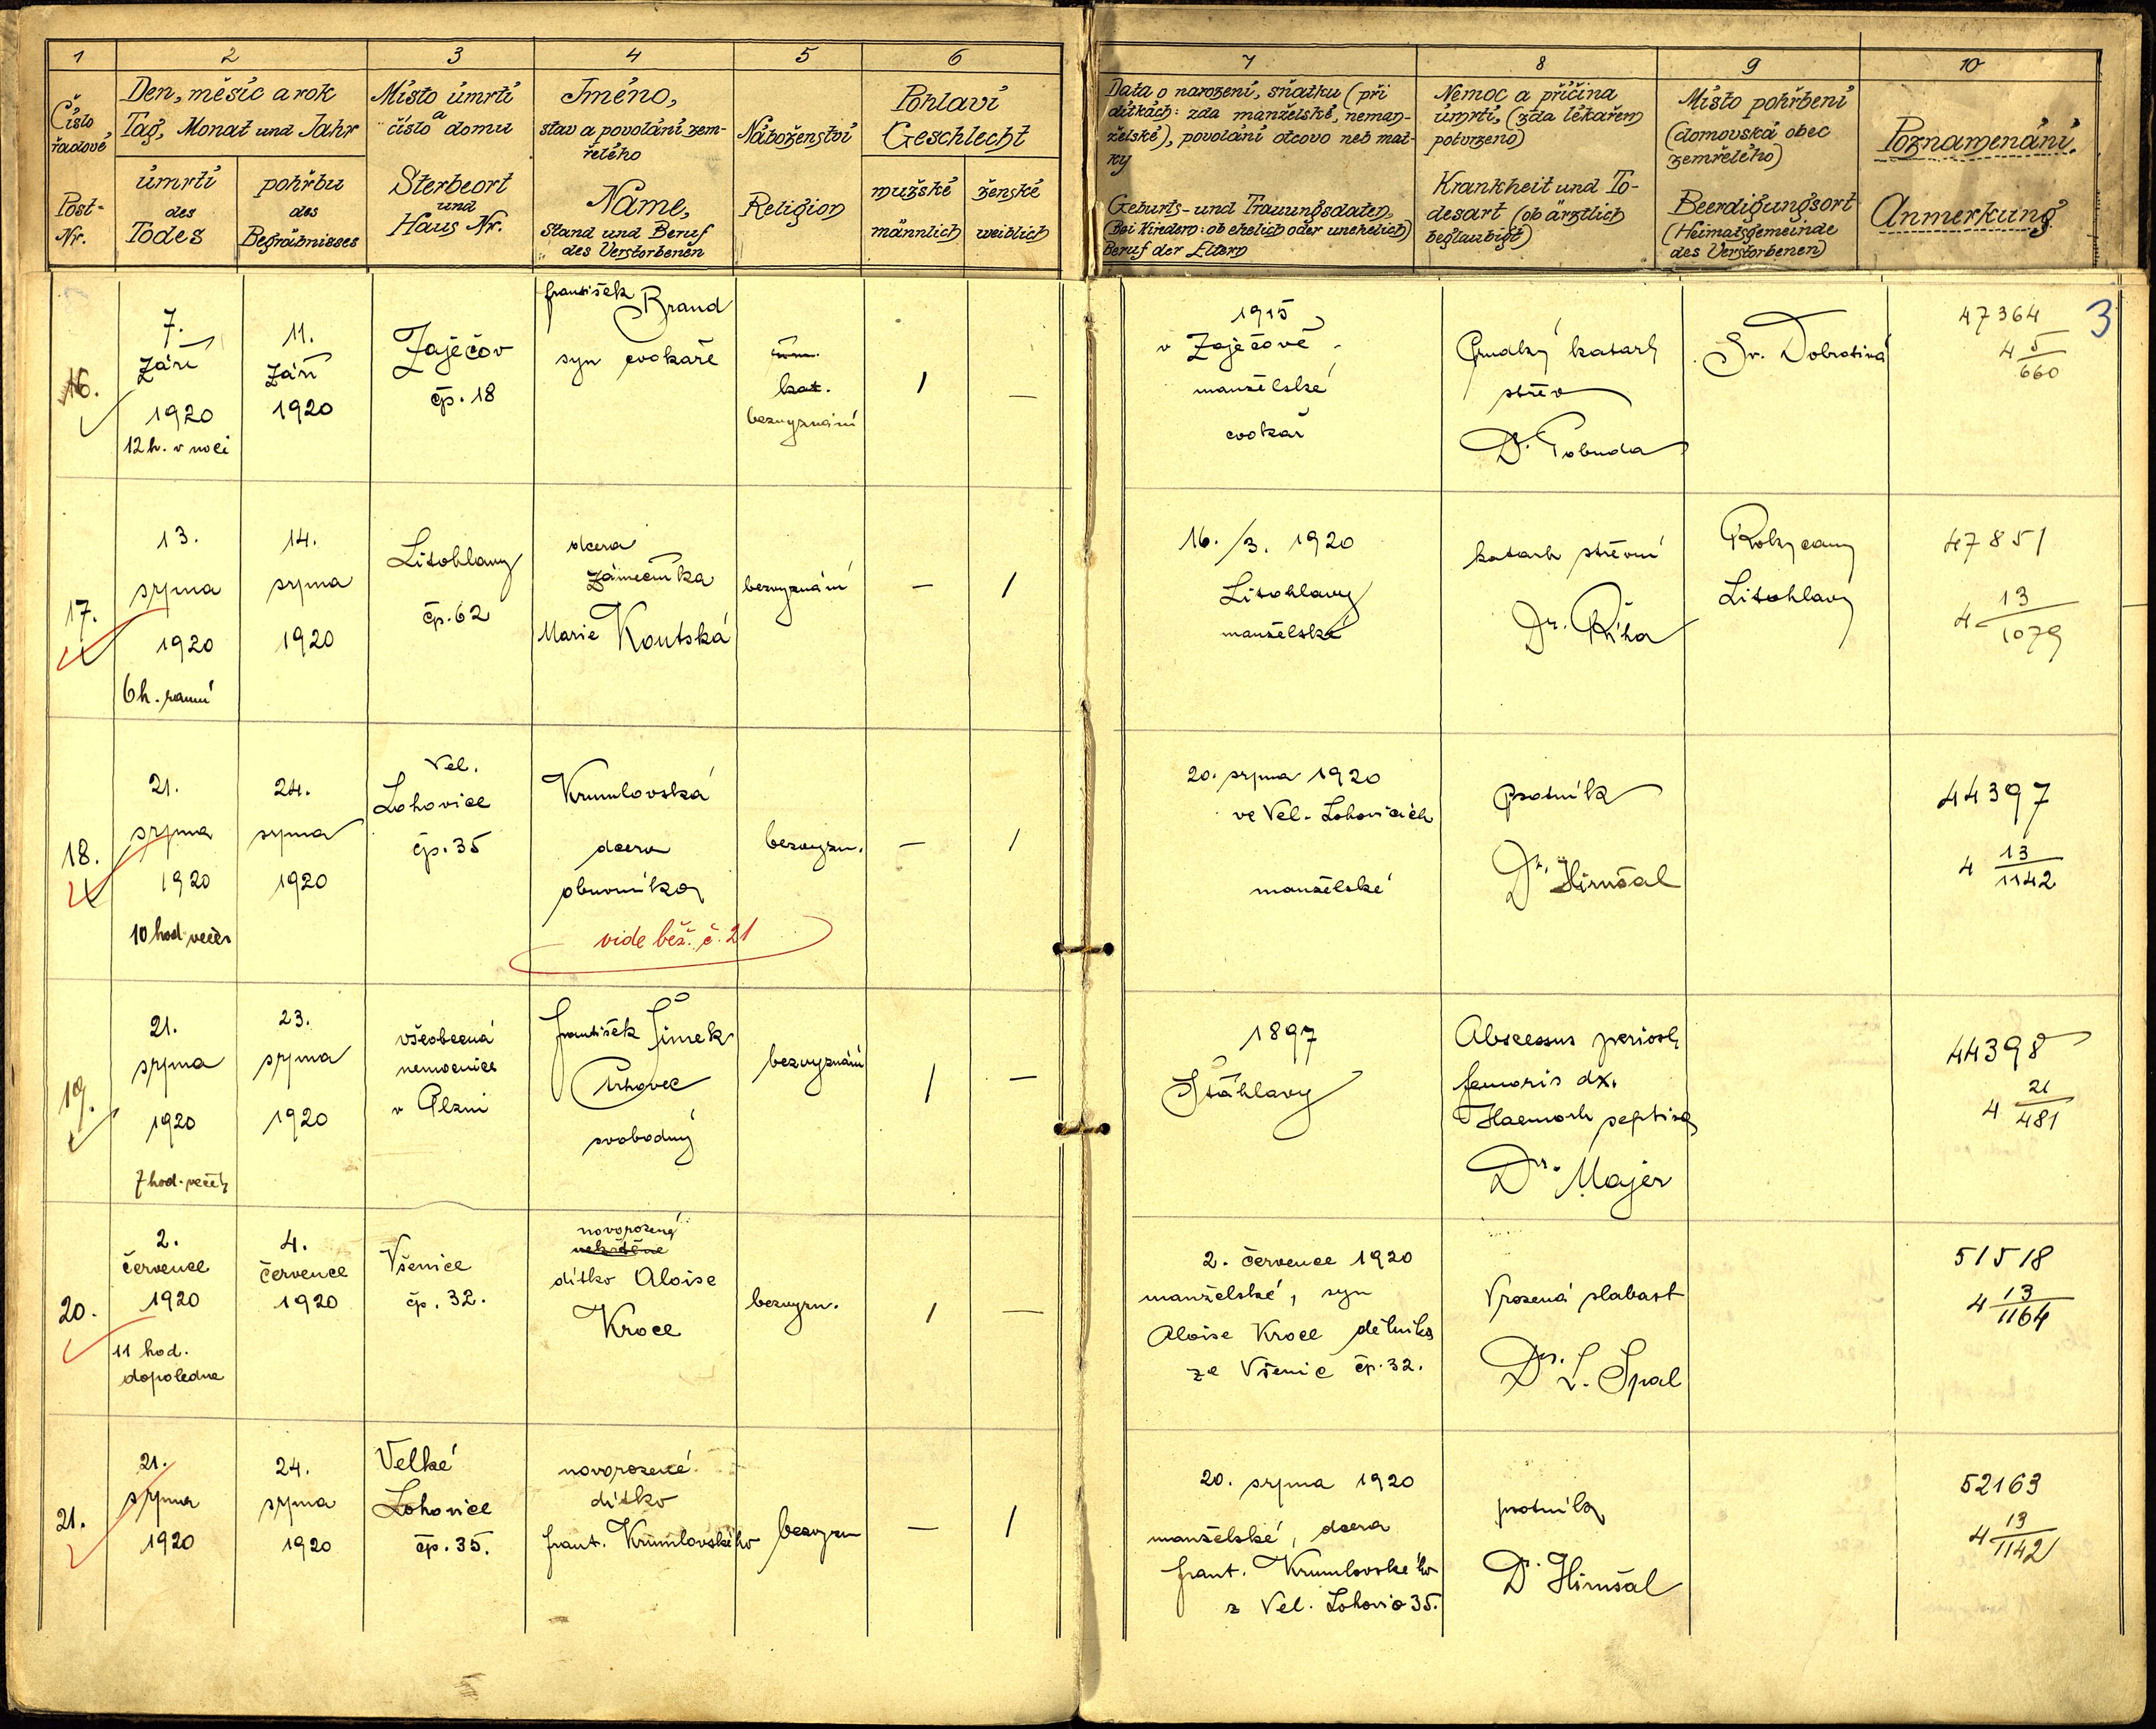 1 2 3 4 5 6
Číslo řadové
Post-Nr.
Den, měsíc a rok
Tag, Monat und Jahr
úmrtí
des
Todes
pohřbu
des
Begräbnisses
Místo úmrtí
a
číslo domu
Sterbeort
und
Haus Nr.
Jméno,
stav a povolání zem-
řelého
Name,
Stand und Beruf
des Verstorbenen
Náboženství
Religion
Pohlaví
Geschlecht
mužské
männlich
ženské
weiblich
7 8 9 10
Data o narození, sňatku (při
dítkách: zda manželské, neman-
želské), povolání otcovo neb mat-
ky
Geburts- und Trauungsdaten,
(Bei Kindern: ob ehelich oder unehelich)
Beruf der Eltern
Nemoc a příčina
úmrtí, (zda lékařem
potvrzeno)
Krankheit und To-
desart (ob ärztlich
beglaubigt)
Místo pohřbení
(domovská obec
zemřelého)
Beerdigungsort
(Heimatsgemeinde
des Verstorbenen)
Poznamenání.
Anmerkung
3
16.
7.
září
1920
12 h. v noci
11.
září
1920
Zaječov
čp. 18
František Brand
syn cvokaře
kat.
bezvyznání
1
—
1915
v Zaječově
manželské
cvokař
Prudký katarh
střev
Sv. Dobrotivá
47364
4 5/660
17.
13.
srpna
1920
6 h. ranní
14.
srpna
1920
Litohlavy
čp. 62
dcera
zámečníka
Marie Koutská
bezvyznání
—
1
16./3. 1920
Litohlavy
manželské
katarh střevní
Dr. Říha
Rokycany
Litohlavy
47851
4 13/1079
18.
21.
srpna
1920
10 hod večer
24.
srpna
1920
Vel.
Lohovice
čp. 35
Krumlovská
dcera
obuvníka
vide běž. č. 21
bezvyzn.
—
1
20. srpna 1920
ve Vel. Lohovicích
manželské
psotník
Dr. Hirnšal
44397
4 13/1142
19.
21.
srpna
1920
7 hod. večer
23.
srpna
1920
všeobecná
nemocnice
v Plzni
František Šimek
svobodný
bezvyznání
1
—
1897
Šťáhlavy
Abscessus periost
femoris dx.
Dr. Majer
44398
4 21/481
20.
2.
července
1920
11 hod.
dopoledne
4.
července
1920
Všenice
čp. 32.
novorozený
nekřtěné
dítko Aloise
Kroce
bezvyzn.
1
—
2. července 1920
manželské, syn
Aloise Kroce dělníka
ze Všenic čp. 32.
Vrozená slabost
Dr. L. Špal
51518
4 13/1164
21.
21.
srpna
1920
24.
srpna
1920
Velké
Lohovice
čp. 35.
novorozené
dítko
frant. Krumlovského
bezvyzn
—
1
20. srpna 1920
manželské, dcera
frant. Krumlovského
z Vel. Lohovic 35.
psotník
Dr. Hirnšal
52163
4 13/1142